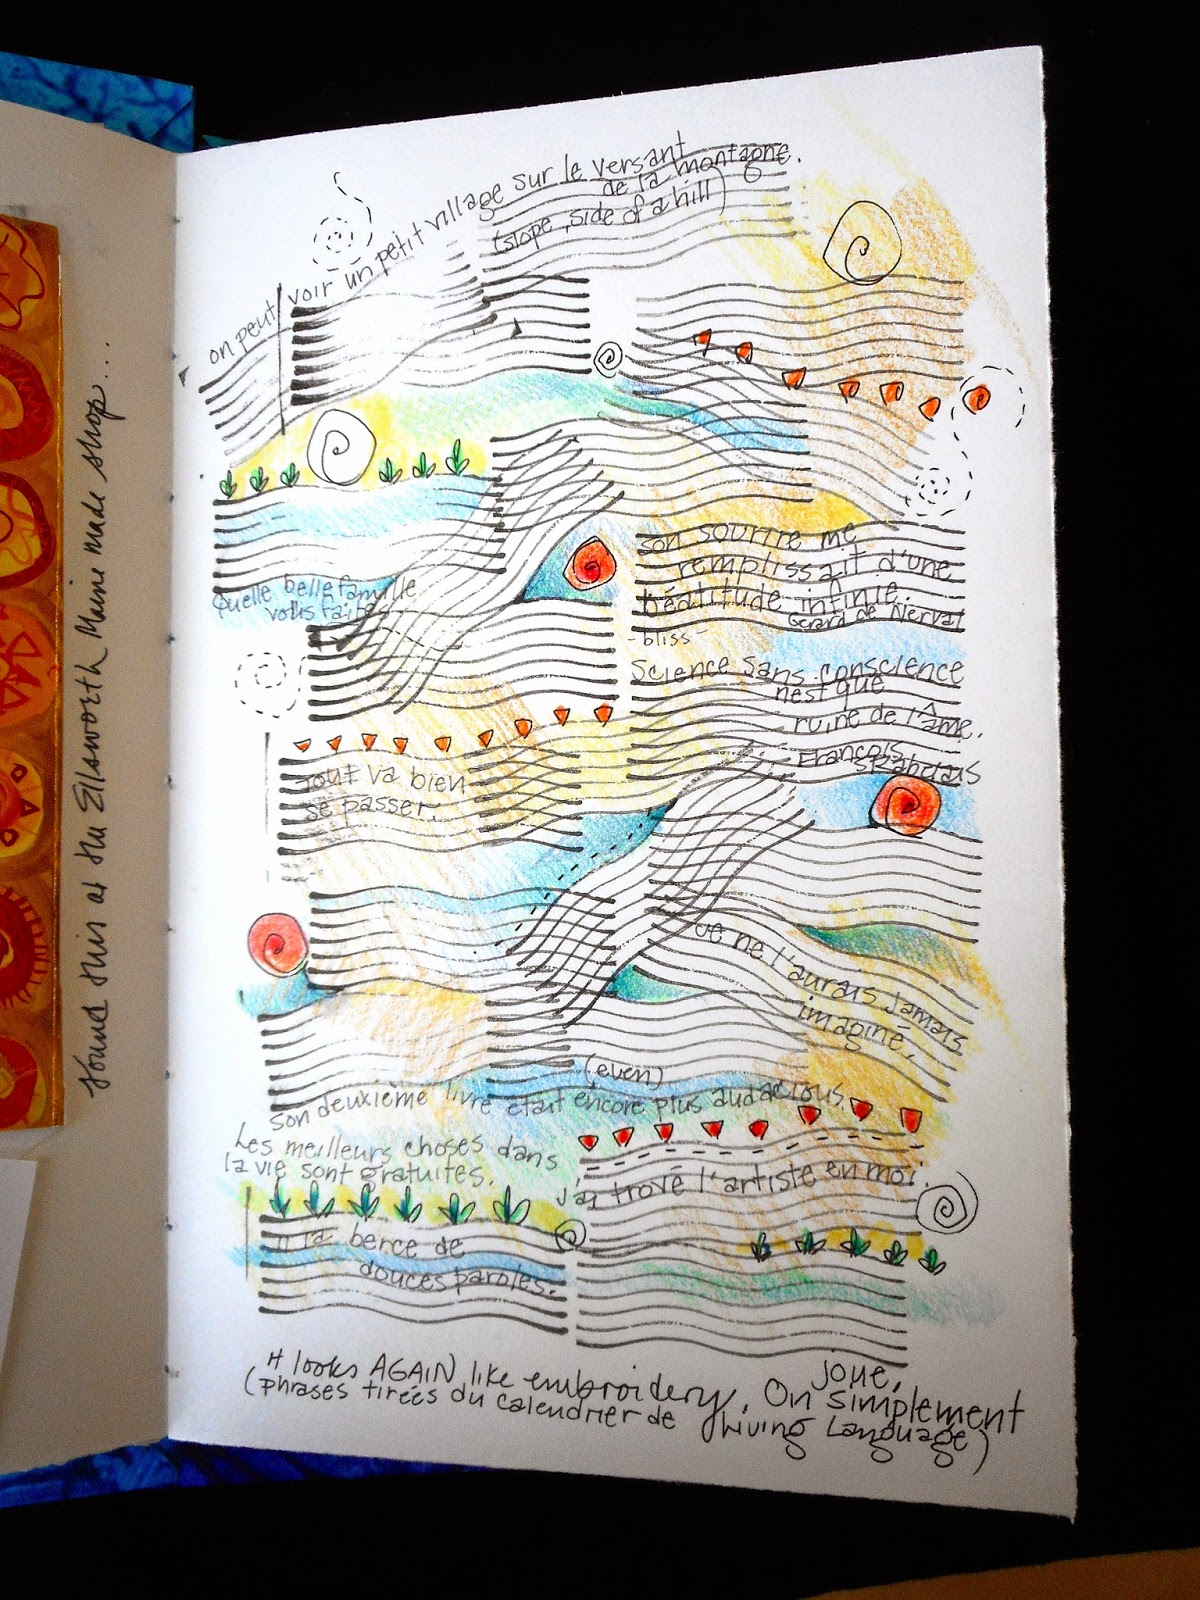 Found this at the Ellsworth Maine made shop...
on peut voir un petit village sur le versant
de la montagne.
(slope, side of a hill)
Quelle belle famille
vous faites
son sourire me
remplissait d'une
béatitude infinie.
Gerard de Nerval
-bliss-
Science sans conscience
n'est que
ruine de l'âme.
François
Rabelais
Tout va bien
se passer.
Je ne l'aurais jamais
imaginé.
(even)
son deuxième livre était encore plus audacious.
Les meilleurs choses dans
la vie sont gratuites.
J'ai trové l'artiste en moi.
Il la berce de
douces paroles.
It looks AGAIN like embroidery. On simplement
joue.
(phrases tirées du calendrier de Living Language)